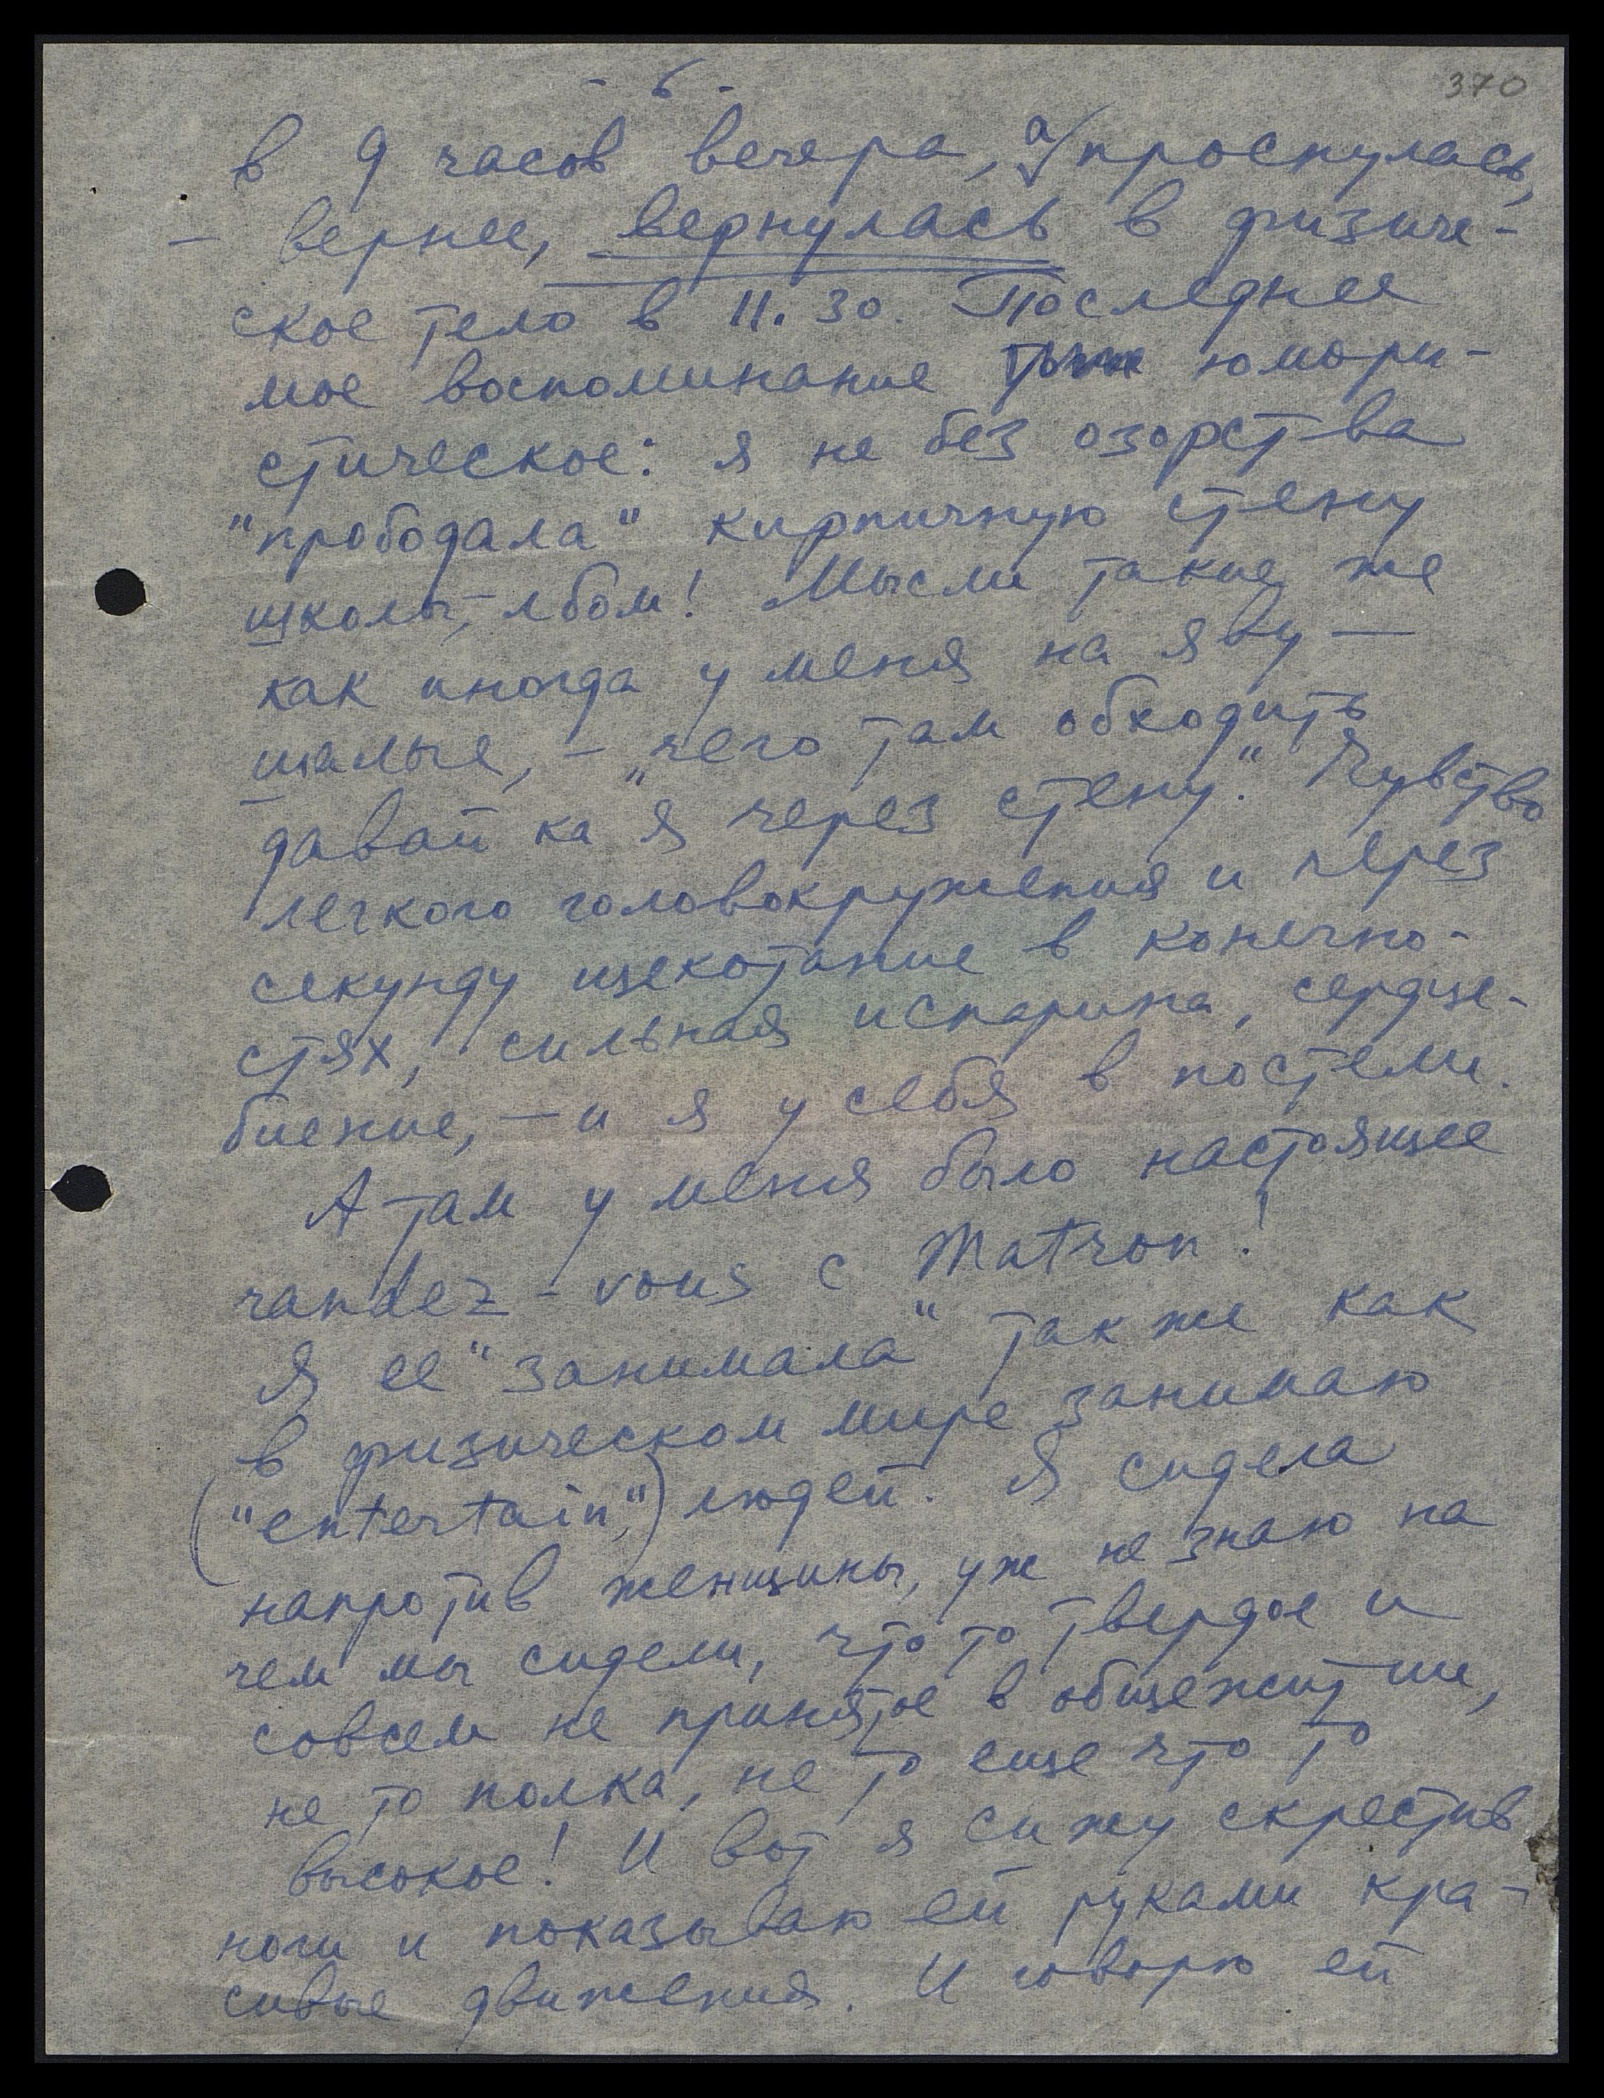 - 6 -
370
в 9 часов вечера, а проснулась,
- вернее, вернулась в физиче-
ское тело в 11.30. Последнее
мое воспоминание юмори-
стическое: я не без озорства
"прободала" кирпичную стену
школы,- лбом! Мысли такие же
как иногда у меня на яву —
шалые, - "чего там обходить
давай ка я через стену." Чувство
легкого головокружения и через
секунду щекотание в конечно-
стях, сильная испарина, сердце-
биение, — и я у себя в постели.
А там у меня было настоящее
randez-vous с Matron!
Я ее "занимала" так же как
в физическом мире занимаю
("entertain") людей. Я сидела
напротив женщины, уж не знаю на
чем мы сидели, что то твердое и
совсем не принятое в общежитии,
не то полка, не то еще что то
высокое! И вот я сижу скрестив
ноги и показываю ей руками кра-
сивые движения. И говорю ей